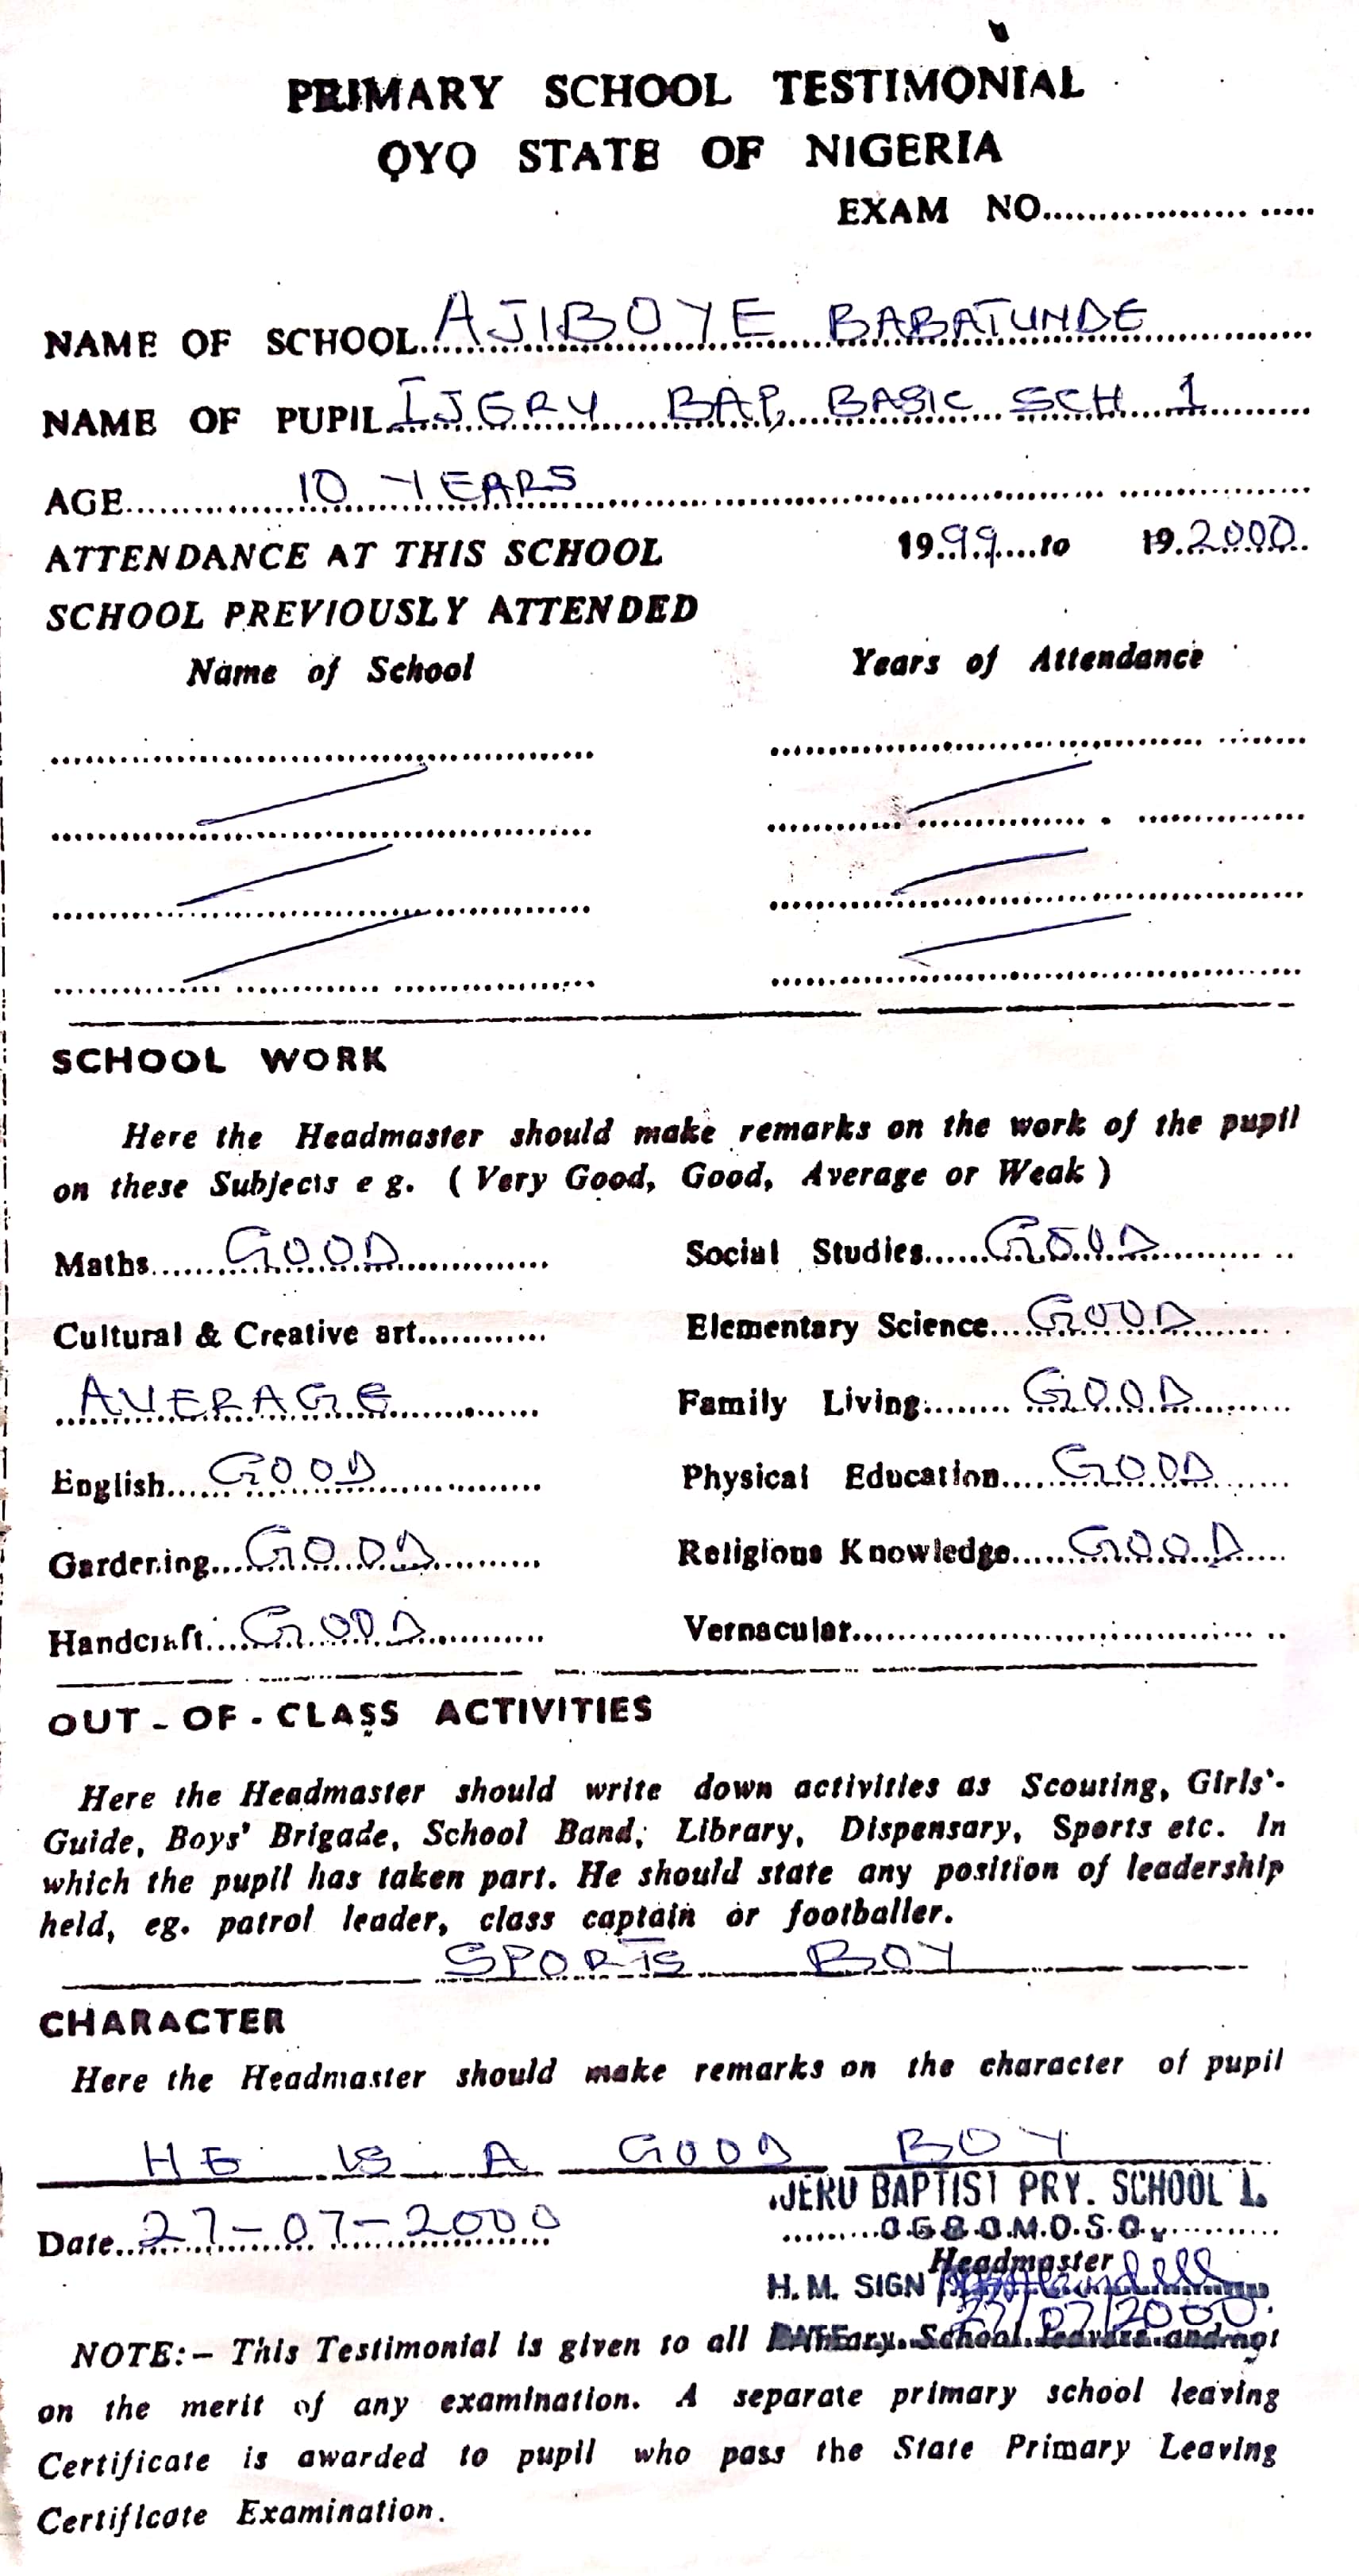 PRIMARY SCHOOL TESTIMONIAL
ỌYỌ STATE OF NIGERIA
EXAM NO........................
NAME OF SCHOOL AJIBOYE BABATUNDE
NAME OF PUPIL IJERU BAP, BASIC SCH 1
AGE 10 YEARS
ATTENDANCE AT THIS SCHOOL 1999 to 19.2000
SCHOOL PREVIOUSLY ATTENDED
Name of School Years of Attendance
SCHOOL WORK
Here the Headmaster should make remarks on the work of the pupil
on these Subjects e g. ( Very Good, Good, Average or Weak )
Maths GOOD Social Studies GOOD
Cultural & Creative art............ Elementary Science GOOD
AVERAGE Family Living GOOD
English GOOD Physical Education GOOD
Gardening GOOD Religious Knowledge GOOD
Handcraft GOOD Vernacular
OUT - OF - CLASS ACTIVITIES
Here the Headmaster should write down activities as Scouting, Girls'-
Guide, Boys' Brigade, School Band; Library, Dispensary, Sports etc. In
which the pupil has taken part. He should state any position of leadership
held, eg. patrol leader, class captain or footballer.
SPORTS BOY
CHARACTER
Here the Headmaster should make remarks on the character of pupil
HE IS A GOOD BOY
IJERU BAPTIST PRY. SCHOOL I.
Date 27-07-2000 OGBOMOSO.
Headmaster
H. M. SIGN
27/07/2000
NOTE:- This Testimonial is given to all Primary School leavers and not
on the merit of any examination. A separate primary school leaving
Certificate is awarded to pupil who pass the State Primary Leaving
Certificate Examination.